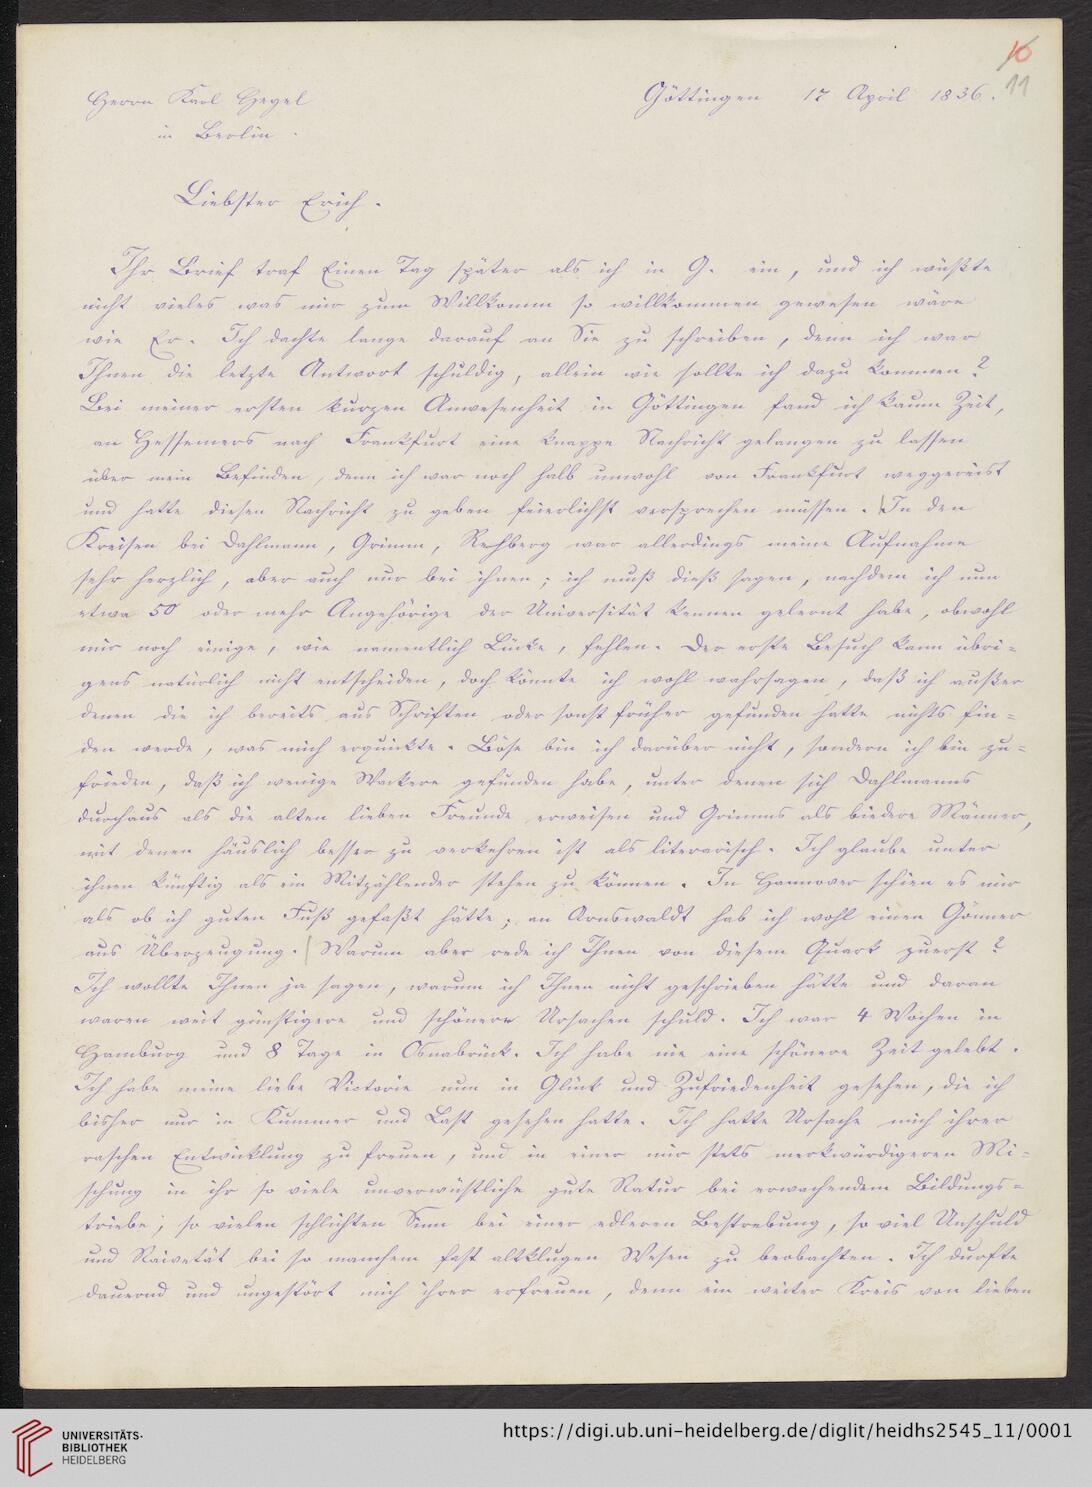 10
11
Herrn Karl Hegel
Göttingen 17 April 1836.
in Berlin.
Liebster Erich.
Ihr Brief traf Einen Tag später als ich in G. ein, und ich wüßte
nicht vieles was mir zum Willkomm so willkommen gewesen wäre
wie Er. Ich dachte lange darauf an Sie zu schreiben, denn ich war
Ihnen die letzte Antwort schuldig, allein wie sollte ich dazu kommen?
Bei meiner ersten kurzen Anwesenheit in Göttingen fand ich kaum Zeit,
an Hessemers nach Frankfurt eine knappe Nachricht gelangen zu lassen
über mein Befinden, denn ich war noch halb unwohl von Frankfurt weggereist
und hatte diesen Nachricht zu geben feierlichst versprechen müssen. In den
Kreisen bei Dahlmann, Grimm, Rehberg war allerdings meine Aufnahme
sehr herzlich, aber auch nur bei ihnen; ich muß dieß sagen, nachdem ich nun
etwa 50 oder mehr Angehörige der Universität kennen gelernt habe, obwohl
mir noch einige, wie namentlich Lücke, fehlen. Der erste Besuch kann übri-
gens natürlich nicht entscheiden, doch könnte ich wohl wahrsagen, daß ich außer
denen die ich bereits aus Schriften oder sonst früher gefunden hatte nichts fin-
den werde, was mich erquickte. Böse bin ich darüber nicht, sondern ich bin zu-
frieden, daß ich wenige Wackere gefunden habe, unter denen sich Dahlmanns
durchaus als die alten lieben Freunde erweisen und Grimms als biedere Männer,
mit denen häuslich besser zu verkehren ist als literarisch. Ich glaube unter
ihnen künftig als ein Mitzählender stehen zu können. In Hannover schien es mir
als ob ich guten Fuß gefaßt hätte; an Arnswaldt hab ich wohl einen Gönner
aus Überzeugung. Warum aber rede ich Ihnen von diesem Quark zuerst?
Ich wollte Ihnen ja sagen, warum ich Ihnen nicht geschrieben hätte und daran
waren weit günstigere und schönere Ursachen schuld. Ich war 4 Wochen in
Hamburg und 8 Tage in Osnabrück. Ich habe nie eine schönere Zeit gelebt.
Ich habe meine liebe Victorie nun in Glück und Zufriedenheit gesehen, die ich
bisher nur in Kummer und Last gesehen hatte. Ich hatte Ursache mich ihrer
raschen Entwicklung zu freuen, und in einer mir stets merkwürdigeren Mi-
schung in ihr so viele unverwüstliche gute Natur bei erwachendem Bildungs-
triebe, so vielen schlichten Sinn bei einer edleren Bestrebung, so viel Unschuld
und Naivetät bei so manchem fast altklugen Wesen zu beobachten. Ich durfte
dauernd und ungestört mich ihrer erfreuen, denn ein weiter Kreis von lieben
UNIVERSITÄTS-
BIBLIOTHEK
HEIDELBERG
https://digi.ub.uni-heidelberg.de/diglit/heidhs2545_11/0001